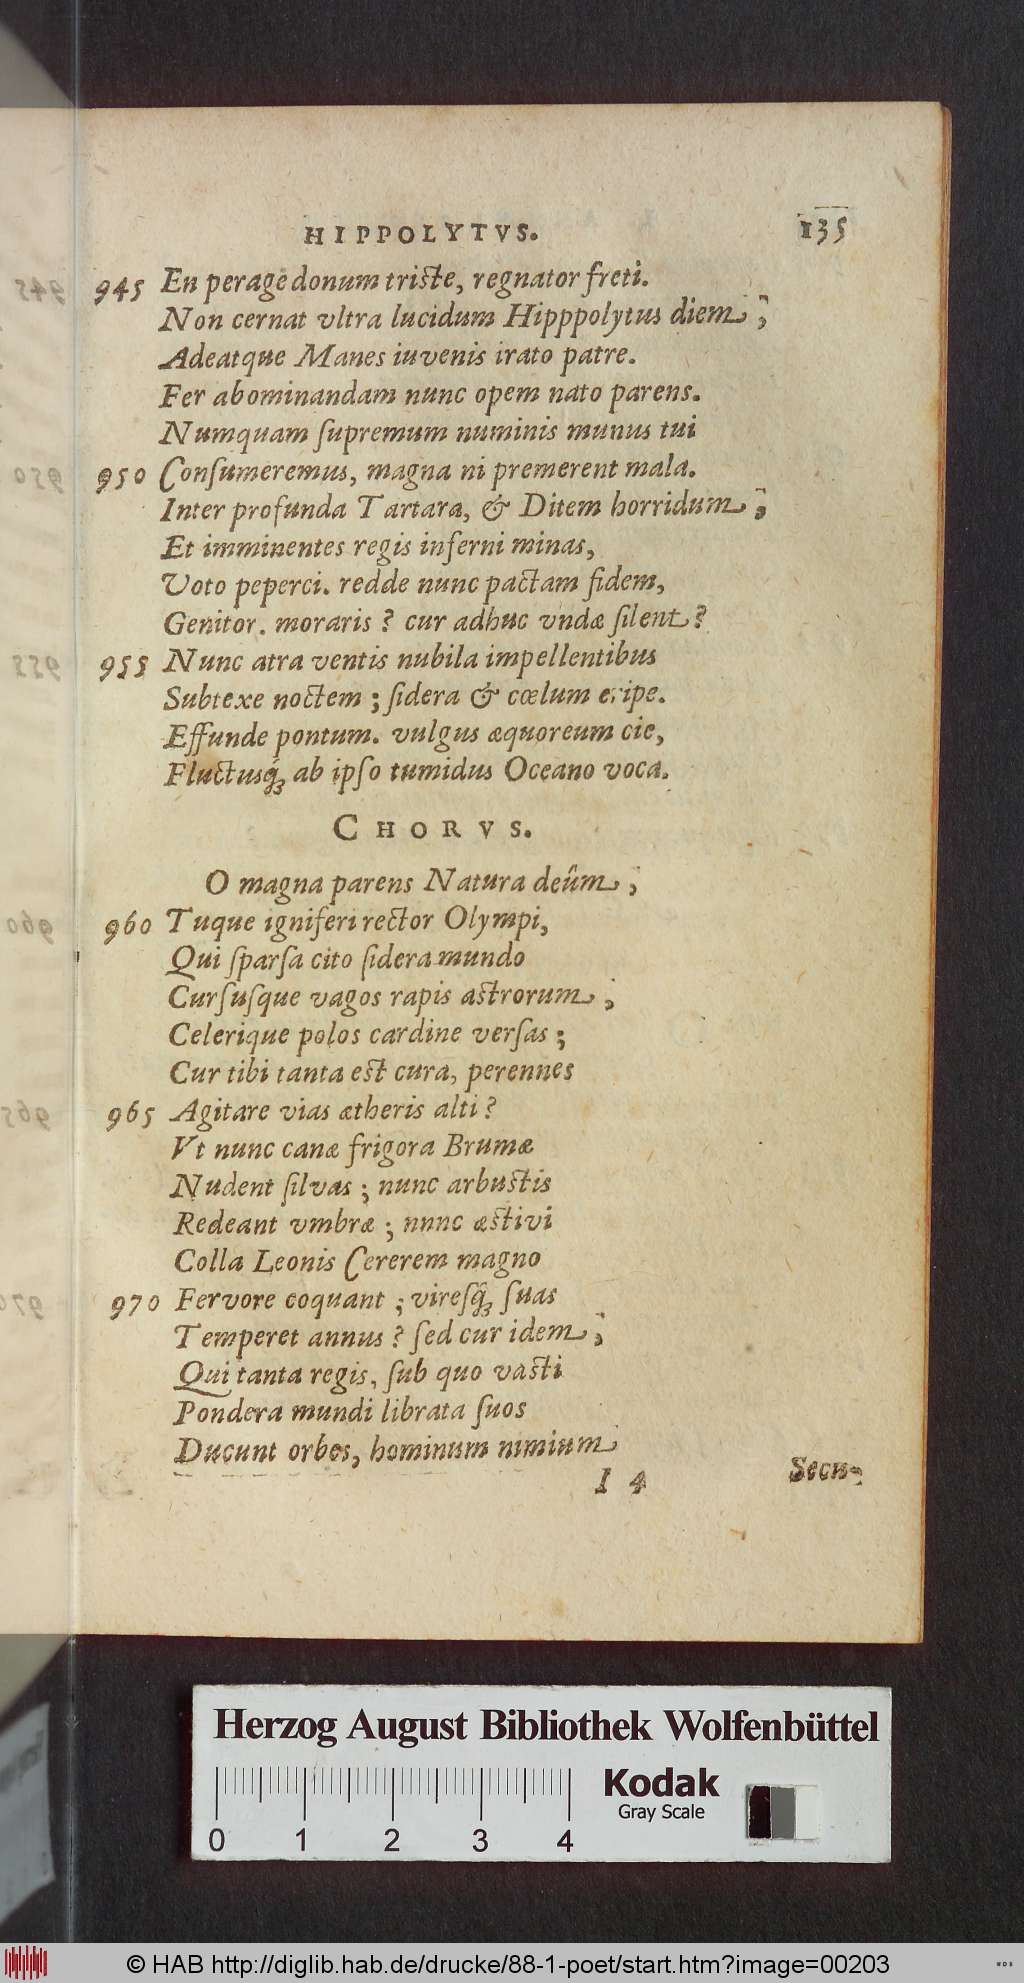 HIPPOLYTVS. 135
945 En perage donum triste, regnator freti.
Non cernat vltra lucidum Hipppolytus diem ;
Adeatque Manes iuvenis irato patre.
Fer abominandam nunc opem nato parens.
Numquam ſupremum numinis munus tui
950 Conſumeremus, magna ni premerent mala.
Inter profunda Tartara, & Ditem horridum ;
Et imminentes regis inferni minas,
Voto peperci. redde nunc pactam fidem,
Genitor. moraris ? cur adhuc vndæ ſilent ?
955 Nunc atra ventis nubila impellentibus
Subtexe noctem ; ſidera & cœlum eripe.
Effunde pontum. vulgus æquoreum cie,
Fluctusq́ꝫ ab ipſo tumidus Oceano voca.
CHORVS.
O magna parens Natura deûm ;
960 Tuque igniferi rector Olympi,
Qui ſparſa cito ſidera mundo
Curſuſque vagos rapis astrorum ;
Celerique polos cardine verſas ;
Cur tibi tanta est cura, perennes
965 Agitare vias ætheris alti ?
Vt nunc canæ frigora Brumæ
Nudent ſilvas ; nunc arbustis
Redeant vmbræ ; nnnc æstivi
Colla Leonis Cererem magno
970 Fervore coquant ; vireſq́ꝫ ſuas
Temperet annus ? ſed cur idem ;
Qui tanta regis, ſub quo vasti
Pondera mundi librata ſuos
Ducunt orbes, hominum nimium
I 4 Secu-
Herzog August Bibliothek Wolfenbüttel
Kodak
Gray Scale
0 1 2 3 4
© HAB http://diglib.hab.de/drucke/88-1-poet/start.htm?image=00203